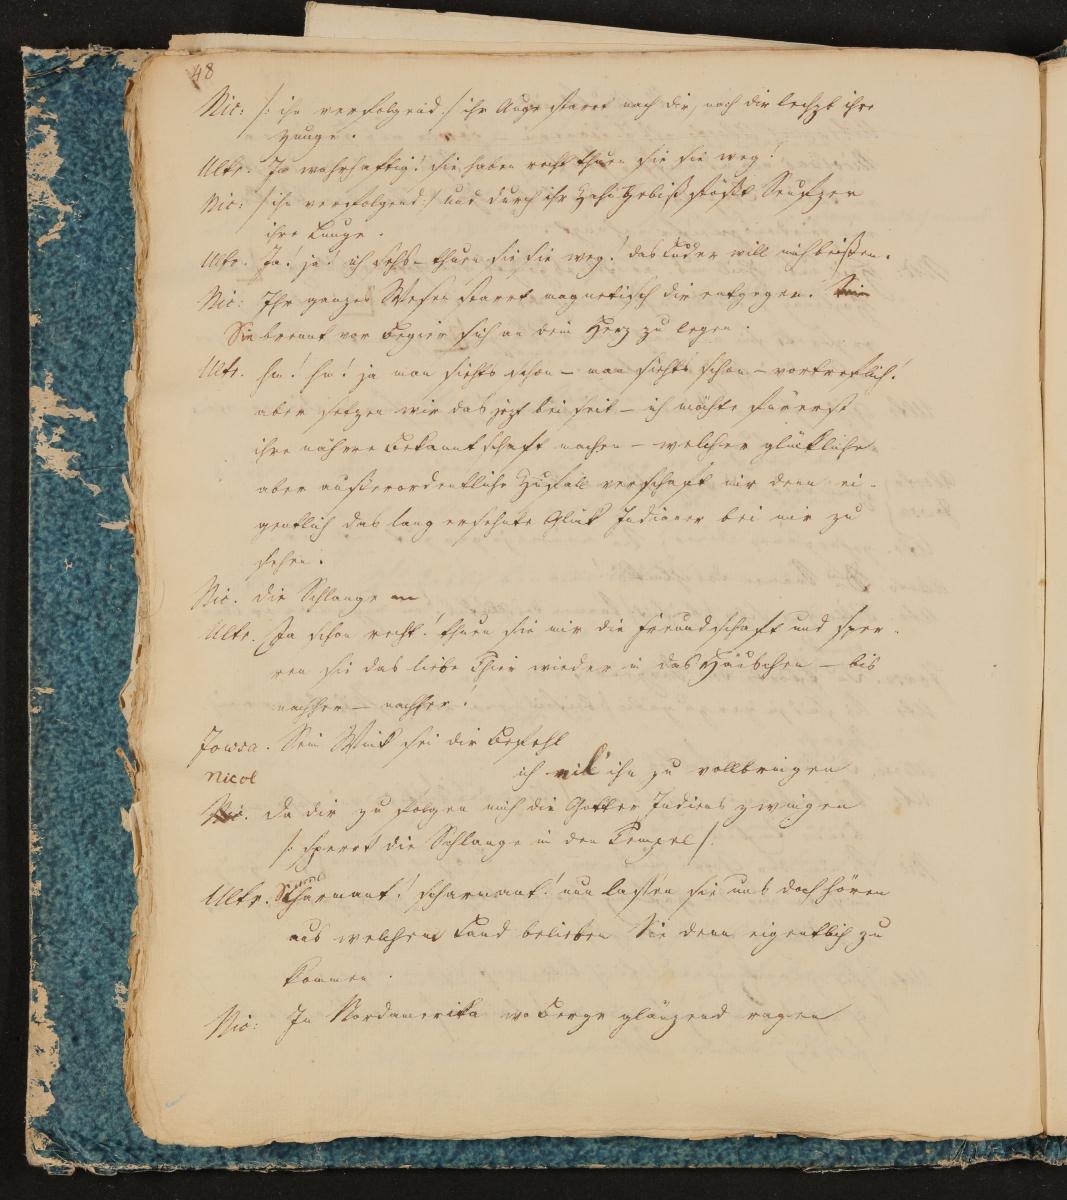 48
Nic: /: ihn verfolgend :/ ihr Auge starrt nach dir, nach dir lechzt ihre
Zunge.
Ultr. Ja wahrhaftig! sie haben recht thuen sie sie weg!
Nic: /: ihn verfolgend :/ und durch ihr Zahn Gebiß stößt Seufzer
ihre Lunge.
Ultr. Ja! ja! ich sehs – thuen sie sie weg! das Luder will mich beißen.
Nic: Ihr ganzes Wesen starrt magnetisch dir entgegen!
Sie brennt vor Begier sich an dein Herz zu legen.
Ultr. hm! hm! ja man siehts schon – man siehts schon – vortreflich!
aber setzen wir das jezt bei seit – ich möchte fürerst
ihre nähere Bekanntschaft machen – welcher glückliche
aber außerordentliche Zufall verschaft mir denn ei-
gentlich das lang ersehnte Glük Indianer bei mir zu
sehen.
Nic. die Schlange
Ultr. Ja schon recht! thuen sie mir die Freundschaft und sper-
ren sie das liebe Thier wieder in das Häuschen – bis
nachher – nachher!
Jowsa. Sein Wink sei dir Befehl
Nicol ich will ihn zu vollbringen
Nic. Da dir zu folgen mich die Götter Indiens zwingen
/: sperrt die Schlange in den Tempel :/
Ultr. Scharmant! scharmant! nun lassen sie uns doch hören
aus welchem Land belieben Sie denn eigentlich zu
kommen.
Nic: In Nordamerika wo Berge glänzend ragen